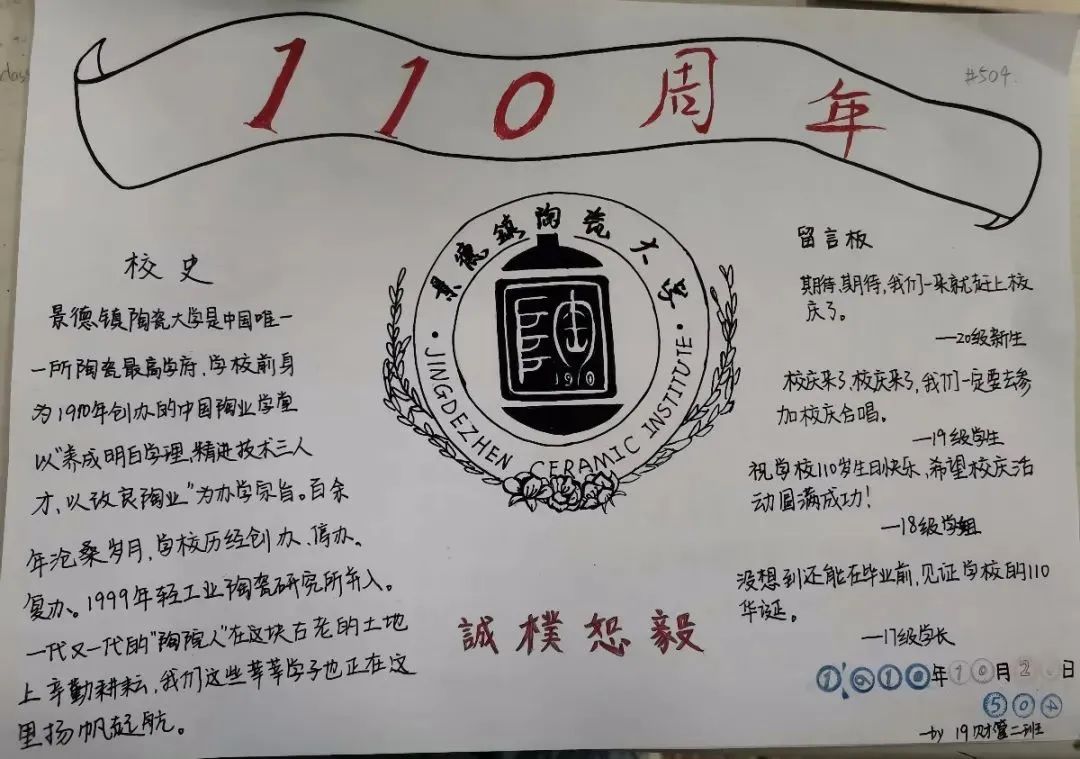 110周年
#504
class
校史
景德镇陶瓷大学是中国唯一
一所陶瓷最高学府,学校前身
为1910年创办的中国陶业学堂
以"养成明白学理,精进技术三人
才,以改良陶业"为办学宗旨。百余
年沧桑岁月,学校历经创办、停办、
复办。1999年轻工业陶瓷研究所并入。
一代又一代的"陶院人"在这块古老的土地
上辛勤耕耘,我们这些莘莘学子也正在这
里扬帆起航。
景德镇陶瓷大学
1910
·JINGDEZHEN CERAMIC INSTITUTE·
誠樸恕毅
留言板
期待,期待,我们一来就赶上校
庆了。
—20级新生
校庆来了,校庆来了,我们一定要去参
加校庆合唱。
—19级学生
祝学校110岁生日快乐,希望校庆活
动圆满成功!
—18级学姐
没想到还能在毕业前,见证学校的110
华诞。
—17级学长
年10月2日
504
—by 19财管二班